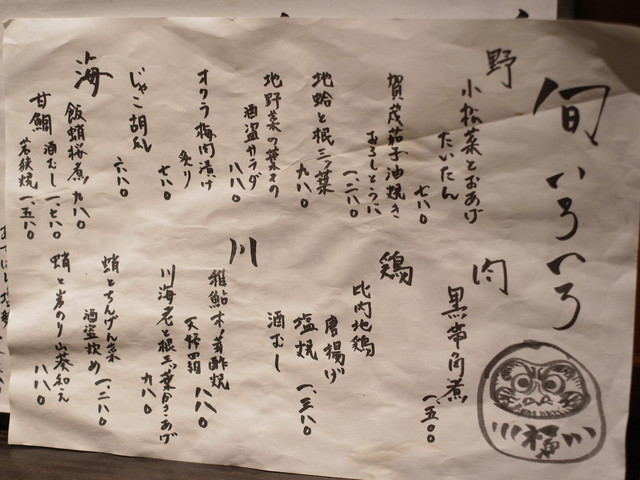 旬いろいろ
野
小松菜とおあげ
たいたん
七八〇
賀茂茄子油焼き
おろしとうふに
一、二八〇
地蛤と根三ツ葉
九八〇
地野菜の葉その
酒盗サラダ
八八〇
オクラ梅肉漬け
炙り
七八〇
じゃこ胡瓜
六八〇
海
飯蛸桜煮
九八〇
甘鯛
酒むし
一、七八〇
若狭焼
一、五八〇
肉
黒帯角煮
一、五〇〇
鶏
比内地鶏
唐揚げ
塩焼
一、三八〇
酒むし
川
稚鮎木ノ芽酢焼
天婦羅
八八〇
川海老と根三ツ葉かきあげ
九八〇
蛸とちんげん菜
酒盗炒め
一、二八〇
蛸と岩のり山葵和え
八八〇